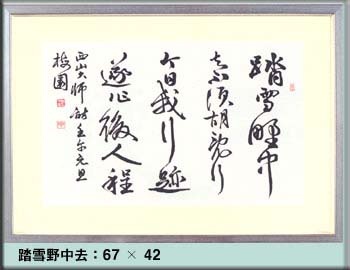 踏雪野中
去不須胡亂行
今日我行跡
遂作後人程
西山大師 元旦
梅園
踏雪野中去：67 × 42